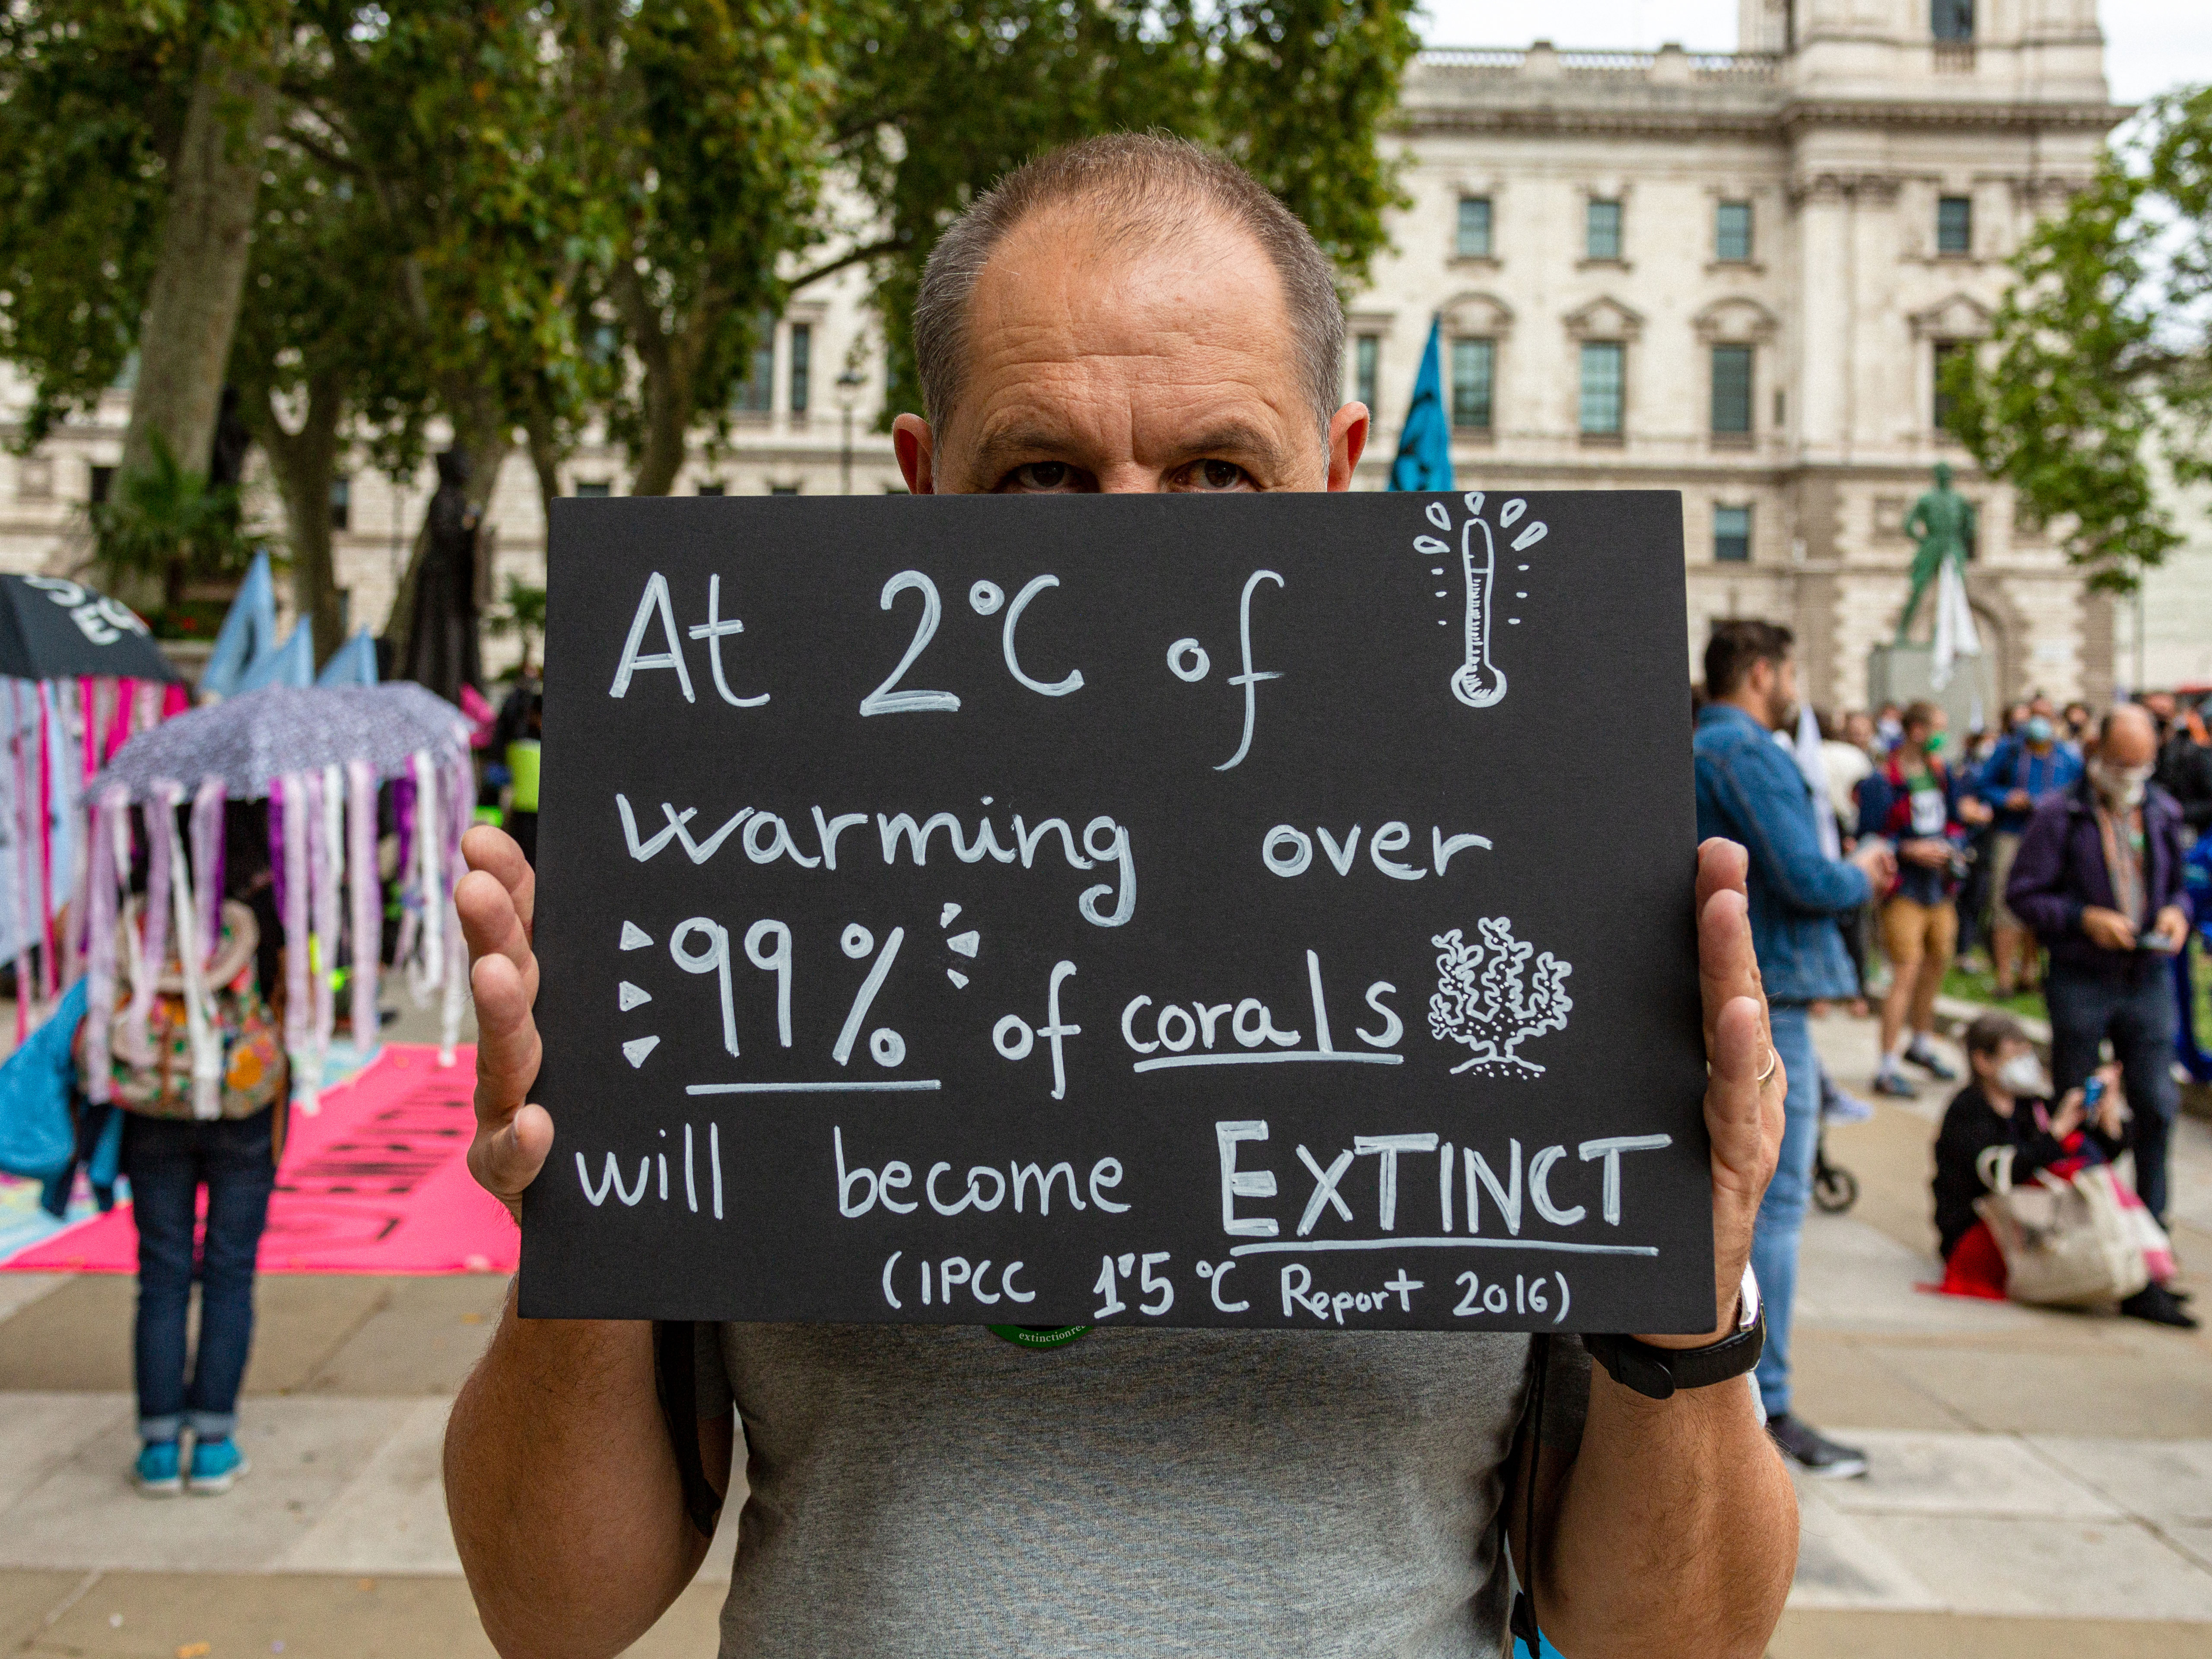 At 2°C of
warming over
99% of corals
will become EXTINCT
(IPCC 1.5°C Report 2016)